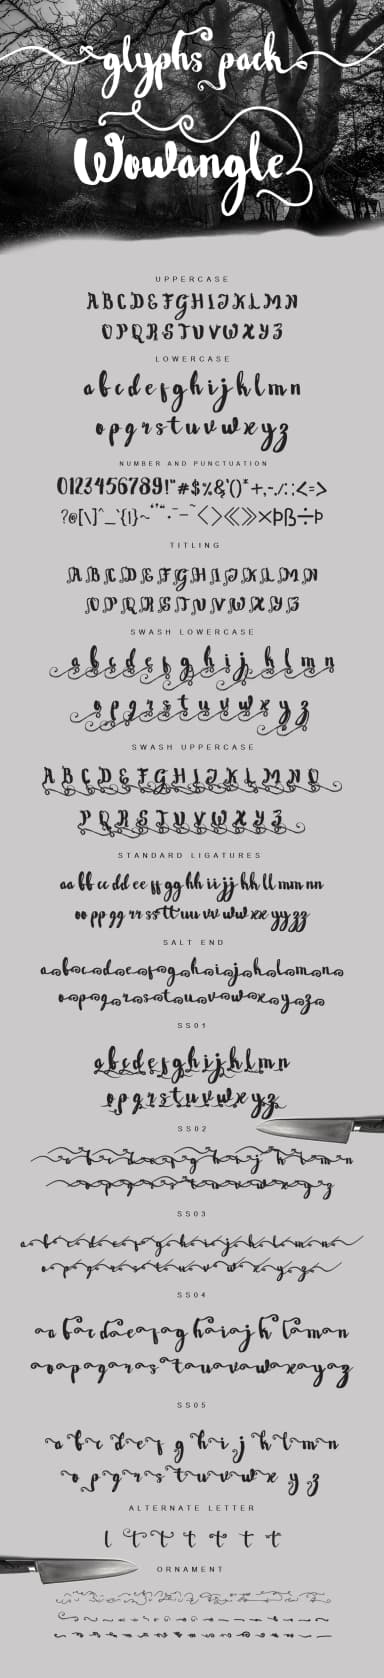 glyphs pack
Wowangle
UPPERCASE
ABCDEFGHIJKLMN
OPQRSTUVWXYZ
LOWERCASE
abcdefghijklmn
opqrstuvwxyz
NUMBER AND PUNCTUATION
0123456789!"#$%&'()*+,-./:;<=>
TITLING
ABCDEFGHIJKLMN
OPQRSTUVWXYZ
SWASH LOWERCASE
abcdefghijklmn
opqrstuvwxyz
SWASH UPPERCASE
ABCDEFGHIJKLMNO
PQRSTUVWXYZ
STANDARD LIGATURES
aa bb cc dd ee ff gg hh ii jj kk ll mm nn
oo pp qq rr ss tt uu vv ww xx yy zz
SALT END
abcdefghijklmn
opqrstuvwxyz
SS01
abcdefghijklmn
opqrstuvwxyz
SS02
abcdefghijklmn
opqrstuvwxyz
SS03
abcdefghijklmn
opqrstuvwxyz
SS04
abcdefghijklmn
opqrstuvwxyz
SS05
abcdefghijklmn
opqrstuvwxyz
ALTERNATE LETTER
l t t t t t t
ORNAMENT